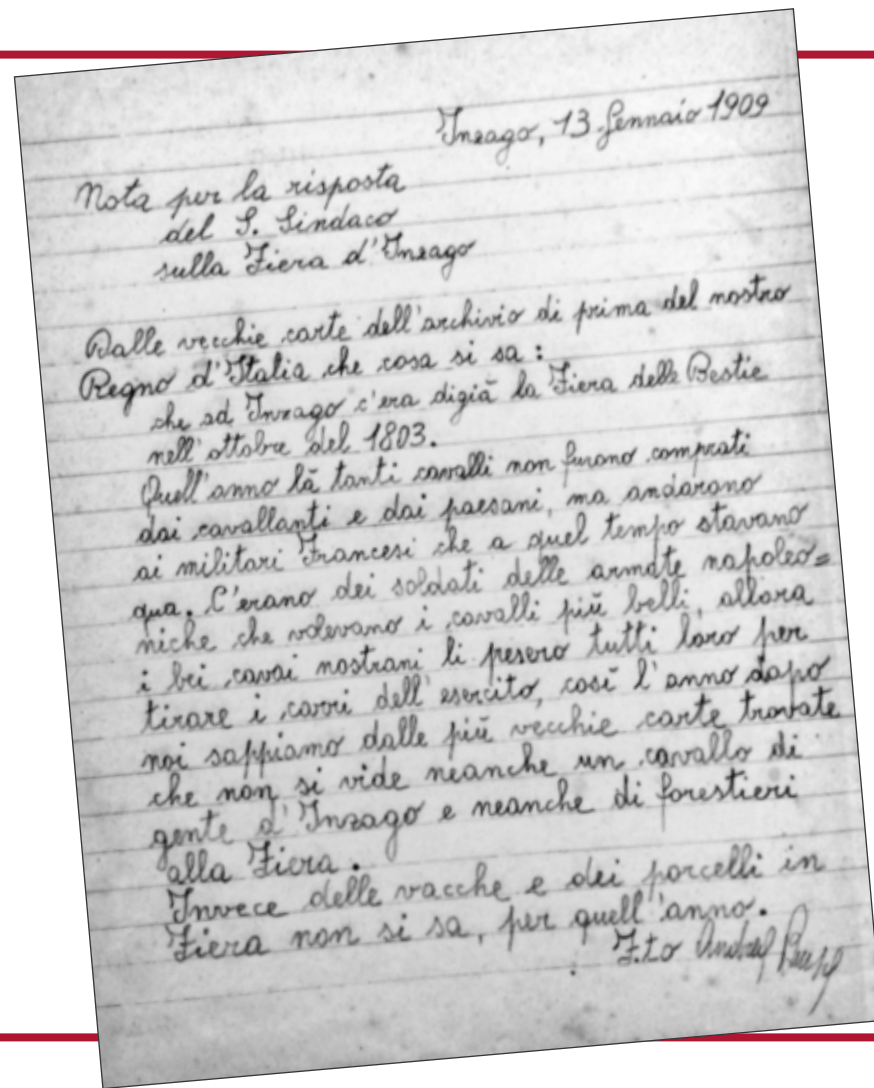 Inzago, 13 Gennaio 1909
Nota per la risposta
del S. Sindaco
sulla Fiera d'Inzago
Dalle vecchie carte dell'archivio di prima del nostro
Regno d'Italia che cosa si sa:
che ad Inzago c'era digià la Fiera delle Bestie
nell'ottobre del 1803.
Quell'anno là tanti cavalli non furono comprati
dai cavallanti e dai paesani, ma andarono
ai militari Francesi che a quel tempo stavano
qua. C'erano dei soldati delle armate napoleo=
niche che volevano i cavalli più belli, allora
i bei cavai nostrani li pesero tutti loro per
tirare i carri dell'esercito, così l'anno dapo
noi sappiamo dalle più vecchie carte trovate
che non si vide neanche un cavallo di
gente d'Inzago e neanche di forestieri
alla Fiera.
Invece delle vacche e dei porcelli in
Fiera non si sa, per quell'anno.
F.to